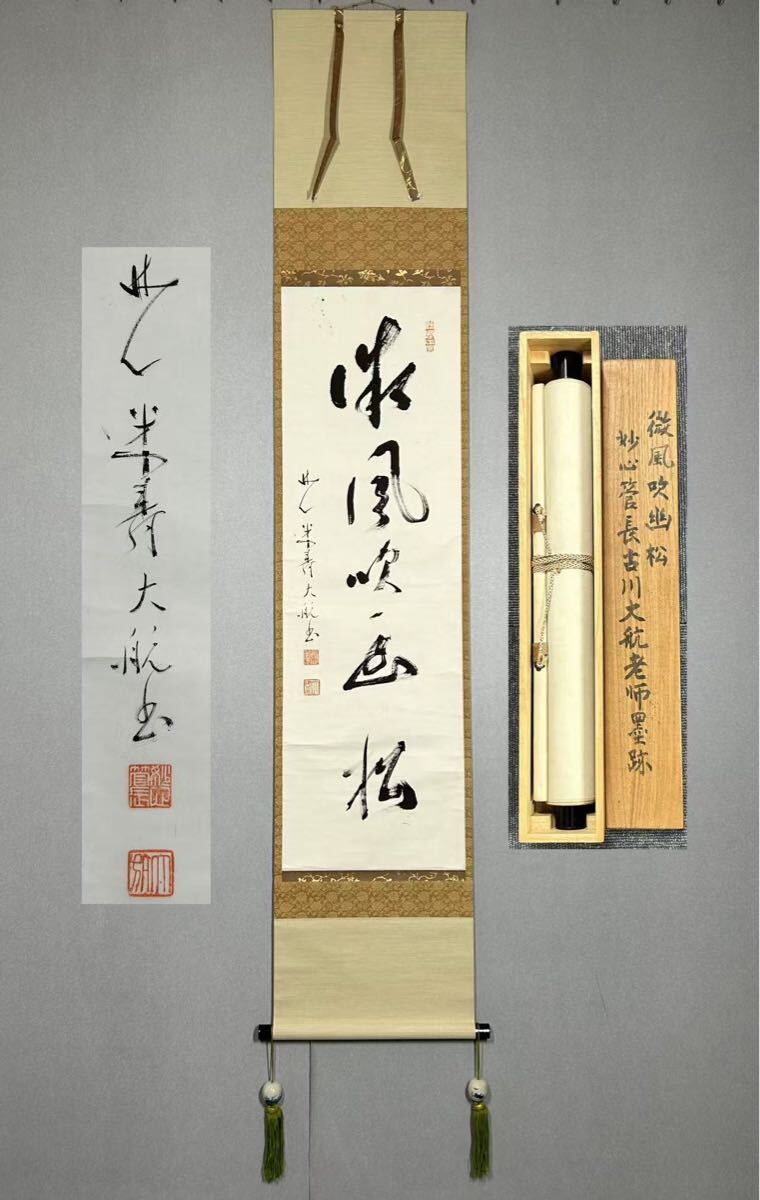 微風吹幽松
米寿大航書
微風吹幽松
妙心管長古川大航老師墨跡
米寿大航書